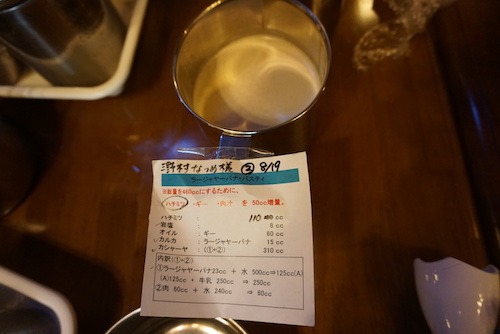 澤村なつめ様 ② 8/19
ラージャヤーパナ・バスティ
※総量を460ccにするために、
ハチミツ・ギー・肉汁 を 50cc増量。
ハチミツ : 110 cc
岩塩 : 6 cc
オイル : ギー 60 cc
カルカ : ラージャヤーパナ 15 cc
カシャーヤ : (①+②) 310 cc
内訳(①+②)
①ラージャヤーパナ23cc + 水 500cc⇒125cc(A)
(A)125cc + 牛乳 250cc ⇒ 250cc
②肉 60cc + 水 240cc ⇒ 60cc